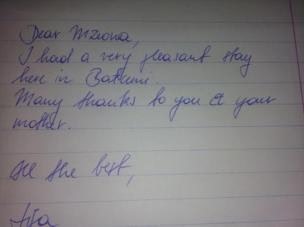 Dear Mziona,
I had a very pleasant stay
here in Batumi.
Many thanks to you & your
mother.
All the best,